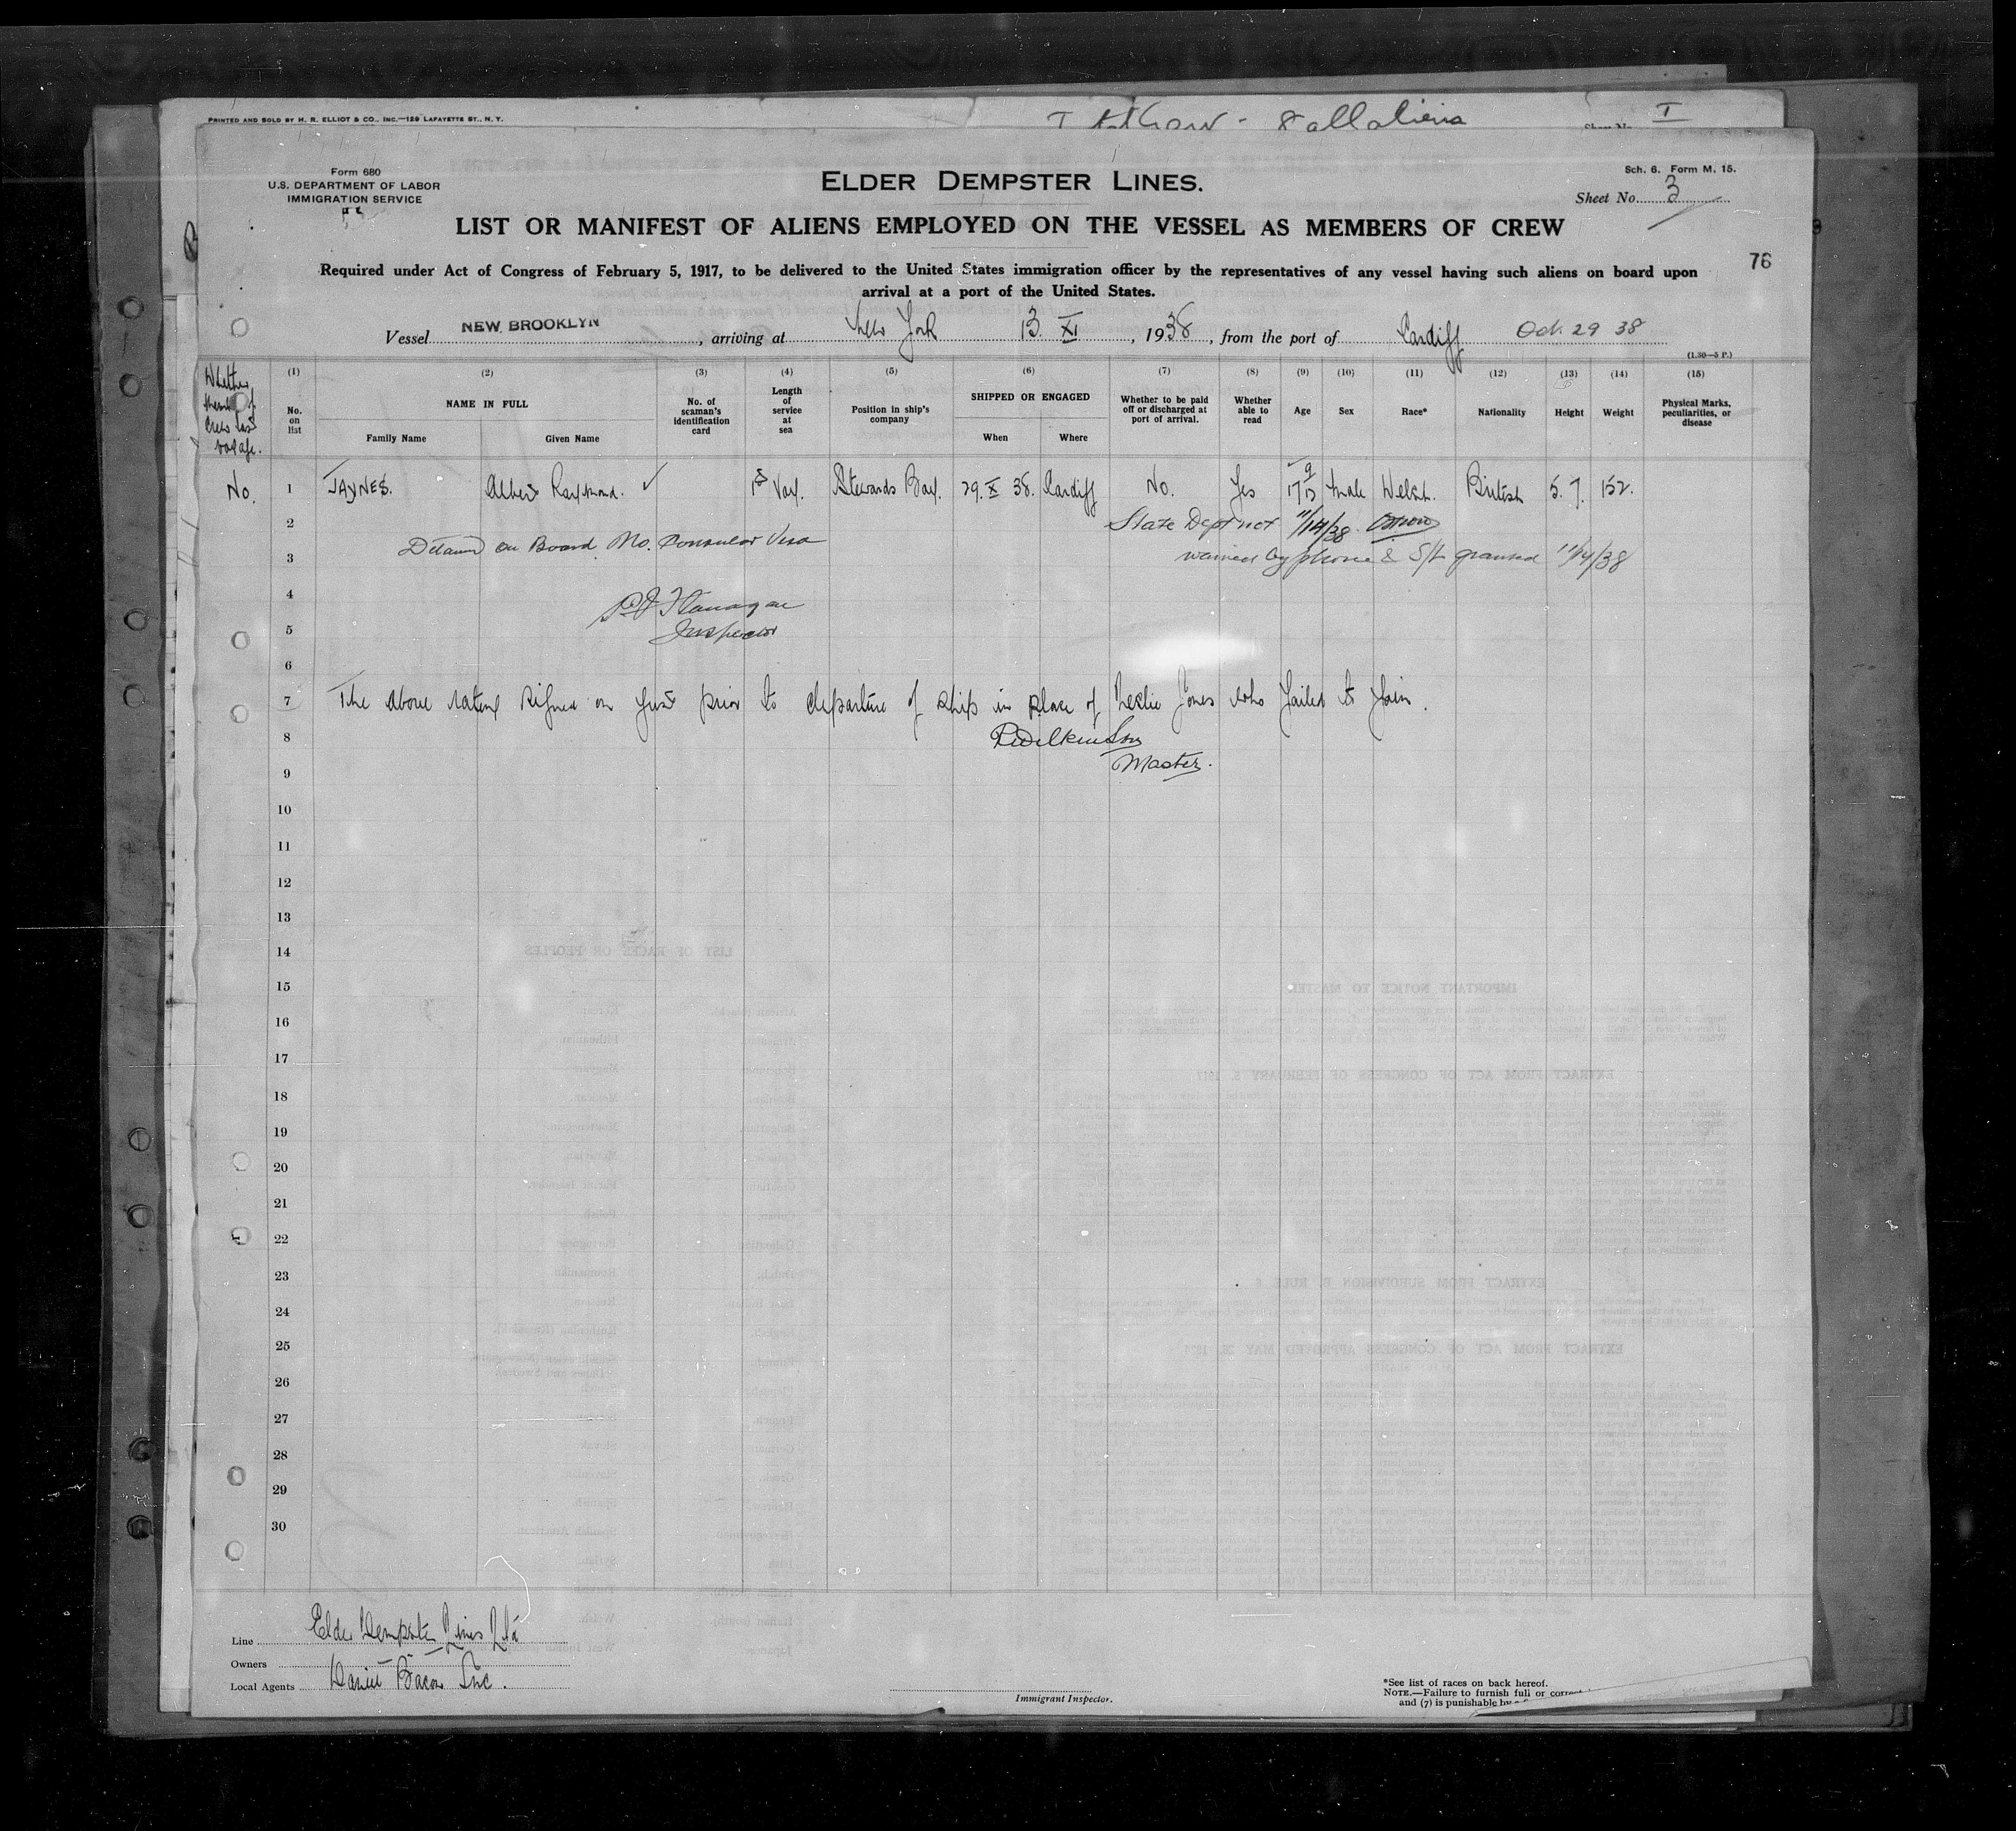 PRINTED AND SOLD BY H. R. ELLIOT & CO., INC.—129 LAFAYETTE ST., N. Y.
8 all aliens
I
Form 680
U.S. DEPARTMENT OF LABOR
IMMIGRATION SERVICE
ELDER DEMPSTER LINES.
Sch. 6. Form M. 15.
Sheet No. 3
LIST OR MANIFEST OF ALIENS EMPLOYED ON THE VESSEL AS MEMBERS OF CREW
76
Required under Act of Congress of February 5, 1917, to be delivered to the United States immigration officer by the representatives of any vessel having such aliens on board upon
arrival at a port of the United States.
Vessel NEW BROOKLYN, arriving at New York 13. XI, 1938, from the port of Cardiff Oct. 29 38
(1.30—5 P.)
Whether member of Crew last voyage.
(1) No. on list
(2) NAME IN FULL Family Name Given Name
(3) No. of seaman's identification card
(4) Length of service at sea
(5) Position in ship's company
(6) SHIPPED OR ENGAGED When Where
(7) Whether to be paid off or discharged at port of arrival.
(8) Whether able to read
(9) Age
(10) Sex
(11) Race*
(12) Nationality
(13) Height
(14) Weight
(15) Physical Marks, peculiarities, or disease
No. 1 JAYNES. Albert Raymond. ✓ 1st Voy. Stewards Boy. 29. X 38. Cardiff No. Yes 17 Male Welsh. British 5. 7. 152.
2 State Dept not 11/14/38
Detained on Board No. Consular Visa
3 waived by phone & S/L granted 11/14/38
4
P J Flanagan
5
Inspector
6
7 The above rating signed on just prior to departure of ship in place of Leslie Jones who failed to join.
8 R Wilkinson
9 Master.
10
11
12
13
14
15
16
17
18
19
20
21
22
23
24
25
26
27
28
29
30
Line Elder Dempster Lines Ltd
Owners
Local Agents Daniel Bacon Inc.
Immigrant Inspector.
*See list of races on back hereof.
NOTE.—Failure to furnish full or correct
and (7) is punishable by